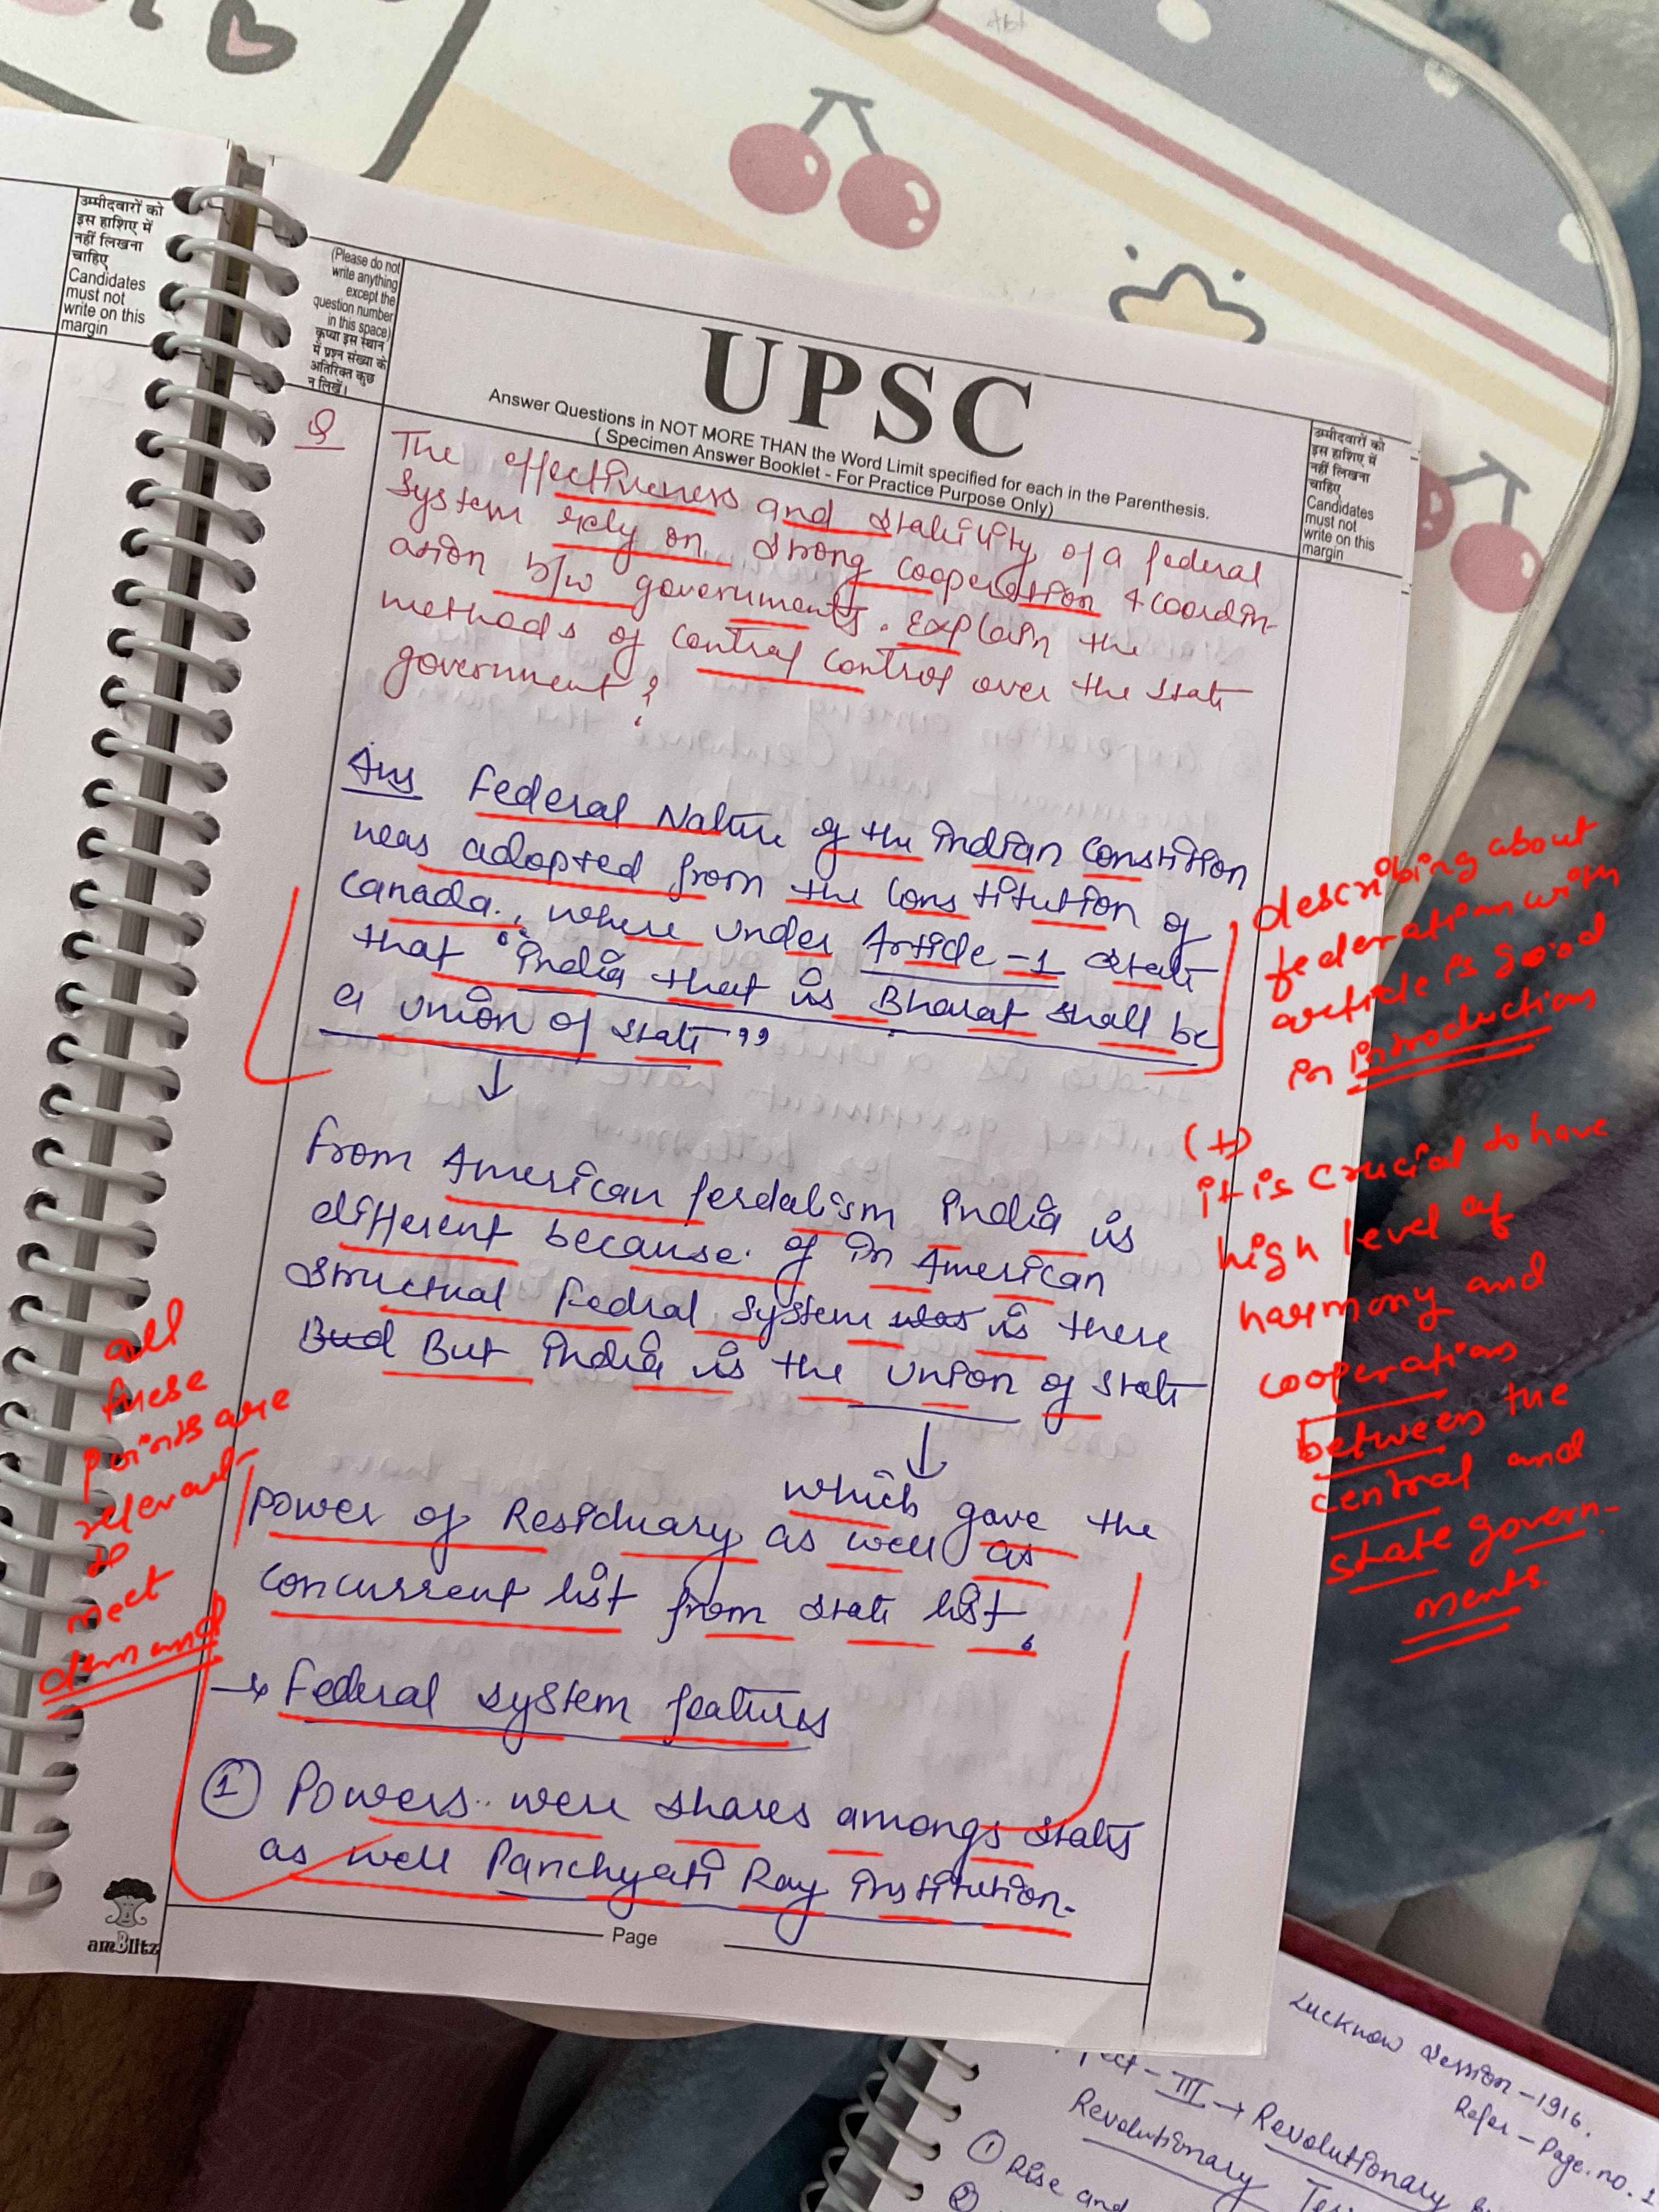 उम्मीदवारों को
इस हाशिए में
नहीं लिखना
चाहिए
Candidates
must not
write on this
margin
(Please do not
write anything
except the
question number
in this space)
कृप्या इस स्थान
में प्रश्न संख्या के
अतिरिक्त कुछ
न लिखें।
UPSC
Answer Questions in NOT MORE THAN the Word Limit specified for each in the Parenthesis.
( Specimen Answer Booklet - For Practice Purpose Only)
उम्मीदवारों को
इस हाशिए में
नहीं लिखना
चाहिए
Candidates
must not
write on this
margin
Q
The effectiveness and stability of a federal
system rely on strong cooperation & coordin-
ation b/w governments. Explain the
methods of central control over the state
government?
Ans Federal Nature of the indian Constition
was adopted from the Constitution of
Canada., where under Article -1 state
that "India that is Bharat shall be
a union of state"
↓
from American ferdalism india is
different because of in American
structual Fedral system was is there
Bud But india is the Union of state
↓
which gave the
power of Residuary as well as
concurrent list from state list.
→ Federal system features
① Powers were shares amongs states
as well Panchyati Ray institution.
describing about
federation with
article is good
in introduction
(+)
it is crucial to have
high level of
harmony and
cooperation
between the
central and
state govern-
ments.
all
these
points are
relevant
to
meet
demand
amBlitz
Page
Lucknow Session - 1916.
Refer - Page. no. 1
III → Revolutionary
Revolutionary
① Rise and
②